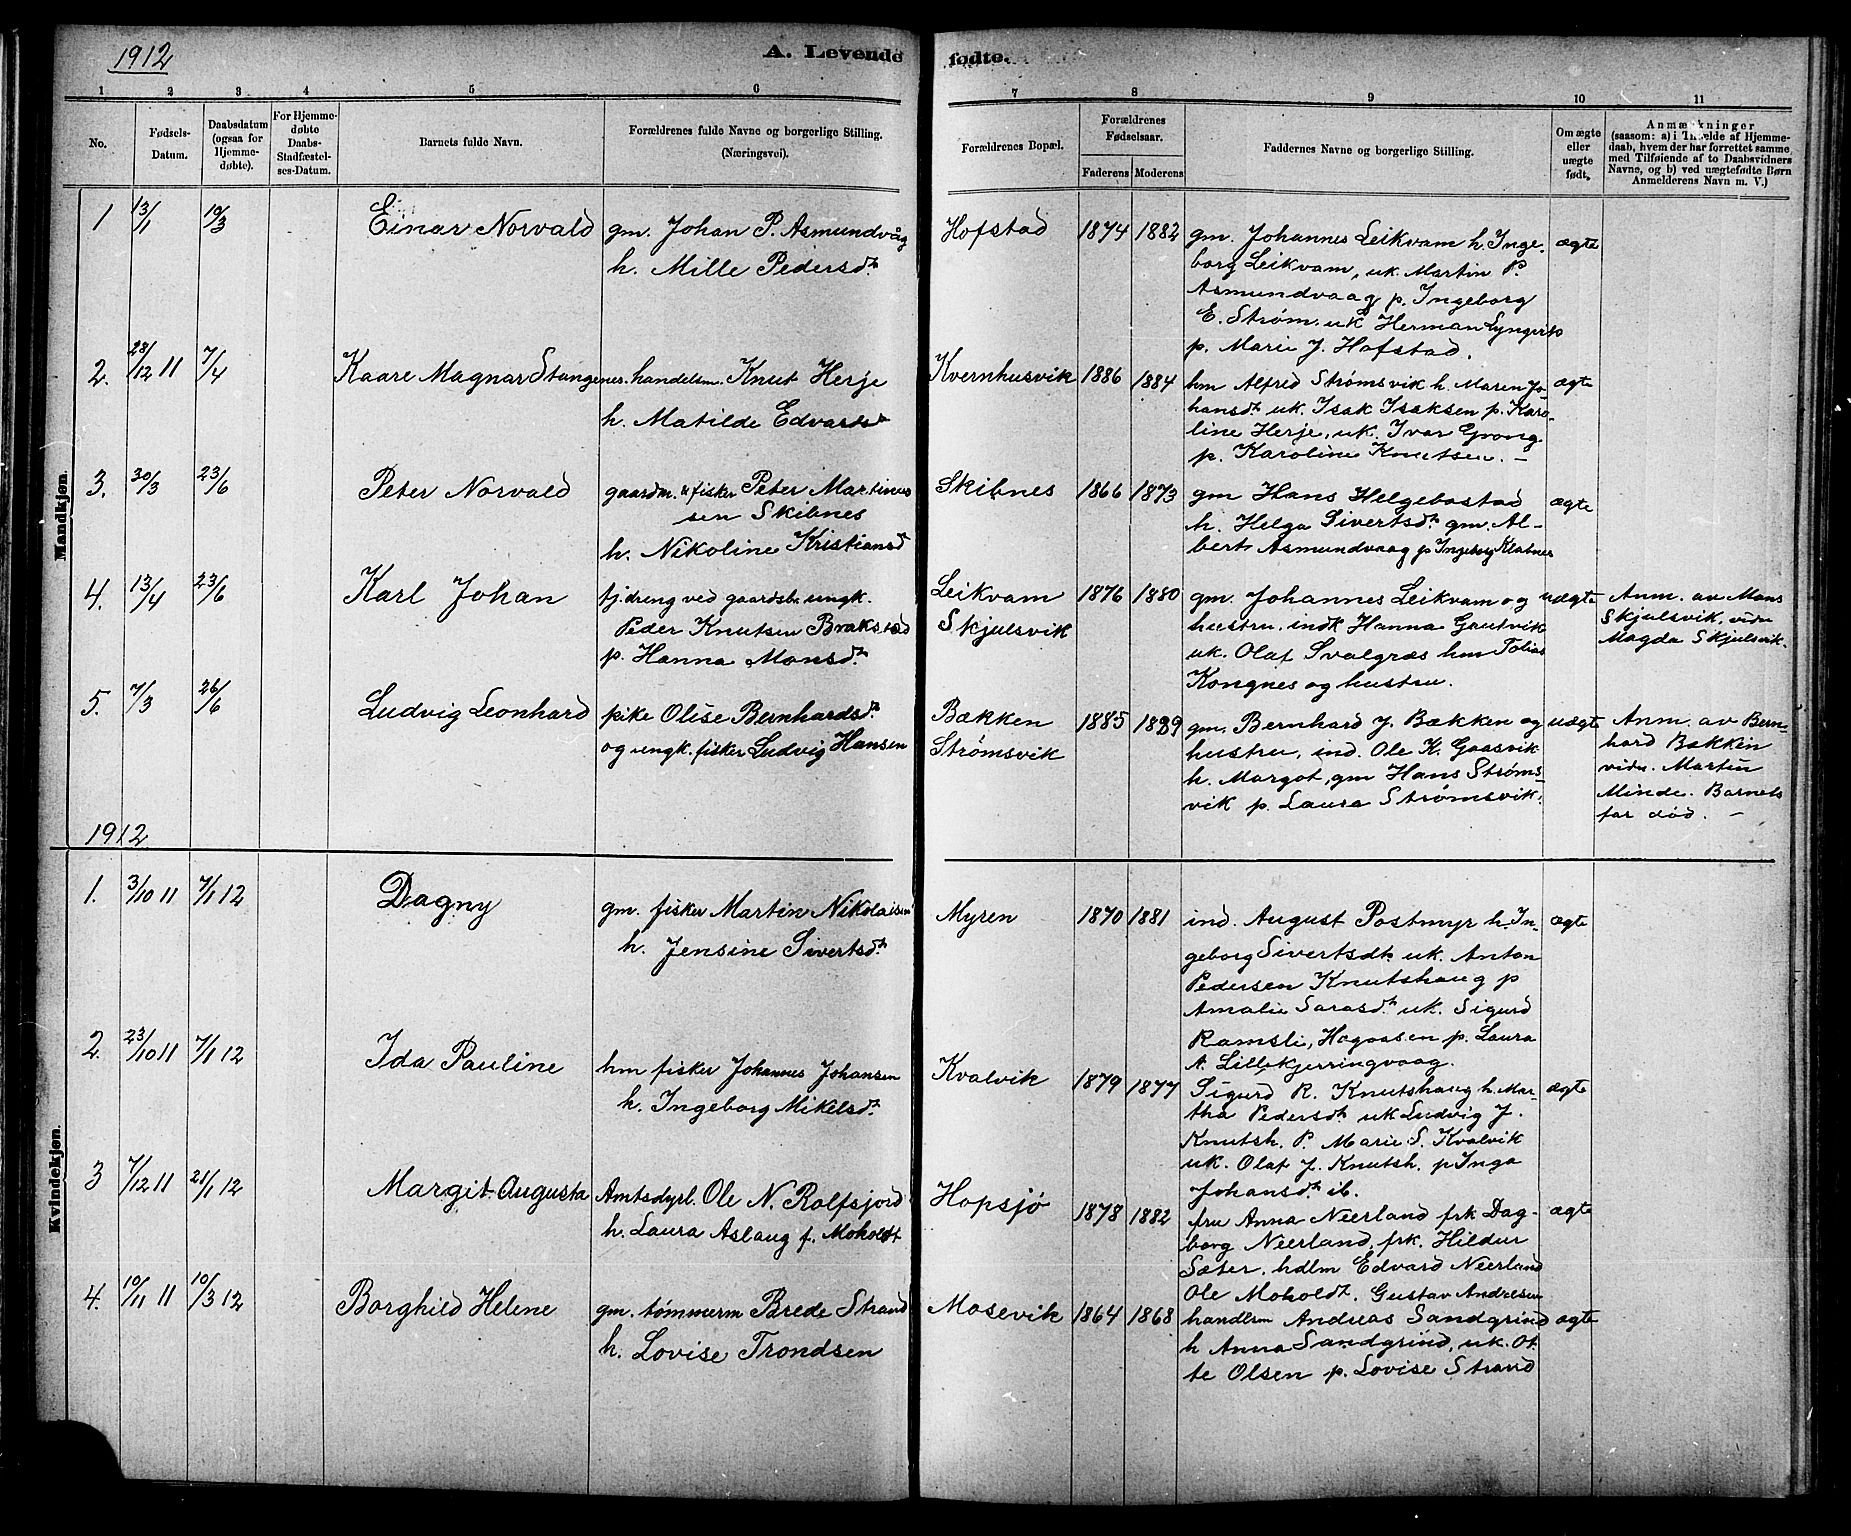 1912
A. Levende fødte.
1 2 3 4 5 6 7 8 9 10 11
No.
Fødsels-
Datum.
Daabsdatum
(ogsaa for
Hjemme-
døbte).
For Hjemme-
døbte
Daabs-
Stadfæstel-
ses-Datum.
Barnets fulde Navn.
Forældrenes fulde Navne og borgerlige Stilling.
(Næringsvei).
Forældrenes Bopæl.
Forældrenes
Fødselsaar.
Faderens Moderens
Faddernes Navne og borgerlige Stilling.
Om ægte
eller
uægte
født.
Anmærkninger
(saasom: a) i Tilfælde af Hjemme-
daab, hvem der har forrettet samme,
med Tilføiende af to Daabsvidners
Navne, og b) ved uægtefødte Børn
Anmelderens Navn m. V.)
Mandkjøn.
1 13/1 10/3 Einar Norvald
gm. Johan P. Asmundvåg
h. Mille Pedersdt.
Hofstad 1874 1882
gm. Johannes Leikvam h. Inge-
borg Leikvam, uk. Martin P.
Asmundvaag p. Ingeborg
E. Strøm. uk Herman
p. Marie J. Hofstad.
ægte
2. 28/12 11 7/4 Kaare Magnar Stangenes.
handelsm. Knut Herje
h. Matilde Edvardsdt
Kvernhusvik 1886 1884
hm Alfred Strømsvik h. Maren Jo-
hansdt. uk. Isak Isaksen p. Karo-
line Herje, uk. Ivar Grong
p. Karoline Knutsen. -
ægte
3. 30/3 23/6 Peter Norvald
gaardm. & fisker Peter Martinus
sen Skibnes
h. Nikoline Kristiansd
Skibnes 1866 1873
gm Hans Helgebostad
h. Helga Sivertsdt. gm. Al-
bert Asmundvaag p Ingeborg
ægte
4. 13/4 23/6 Karl Johan
tj.dreng ved gaardsbr. ungk.
Peder Knutsen Brakstad
p. Hanna Monsdt.
Leikvam
Skjulsvik
1876 1880
gm. Johannes Leikvam og
hustru, indk Hanna Gautvik
uk. Olaf Svalgræs hm Tobias
Kongnes og hustru.
uægte
Anm. av Mons
Skjulsvik, vidn
Magda Skjulsvik.
5. 7/3 26/6 Ludvig Leonhard
pike Olise Bernhardsdt.
og ungk. fisker Ludvig Hansen
Bækken
Strømsvik
1885 1889
gm. Bernhard J. Bækken og
hustru, ind. Ole K. Gaasvik
h. Margot, gm Hans Strøms-
vik p. Laura Strømsvik.
uægte
Anm. av Bern-
hard Bækken
vidn. Martin
Minde. Barnets
far død. -
1912
Kvindekjøn.
1. 3/10 11 7/1 12 Dagny
gm. fisker Martin Nikolaisen
h. Jensine Sivertsdt.
Myren 1870 1881
ind. August Postmyr h. In-
geborg Sivertsdt. uk. Anton
Pedersen Knutshaug p
Amalie Sarasdt. uk. Sigurd
Ramsli, Hogaasen p. Laura
A. Lillekjerringvaag.
ægte
2. 23/10 11 7/1 12 Ida Pauline
hm fisker Johannes Johansen
h. Ingeborg Mikelsdt.
Kvalvik 1879 1877
Sigurd R. Knutshaug h. Mar-
tha Pedersdt. uk Ludvig J.
Knutsh. P. Marie S. Kvalvik
uk. Olaf J. Knutsh. p Inga
Johansdt. ib.
ægte
3 7/12 11 21/1 12 Margit Augusta
Amtsdyrl. Ole N. Rolfsjord
h. Laura Aslaug f. Moholdt
Hopsjø 1878 1882
fru Anna Neerland frk Dag-
borg Neerland, frk. Hildur
Sæter. hdlm Edvard Neerland
Ole Moholdt. Gustav Andresen
ægte
4. 10/11 11 10/3 12 Borghild Helene
gm. tømmerm Brede Strand
h. Lovise Trondsen
Mosevik 1864 1868
handlsm Andreas Sandgrind
h Anna Sandgrind, uk. Ot
te Olsen p. Lovise Strand
ægte